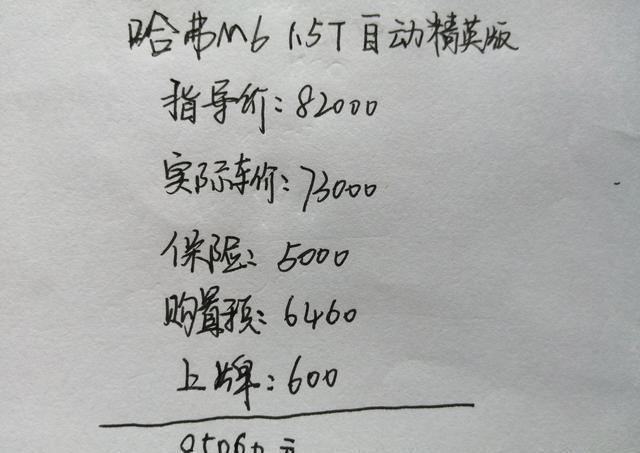 哈弗M6 1.5T自动精英版
指导价：82000
实际车价：73000
保险：5000
购置预：6460
上牌：600
85060元